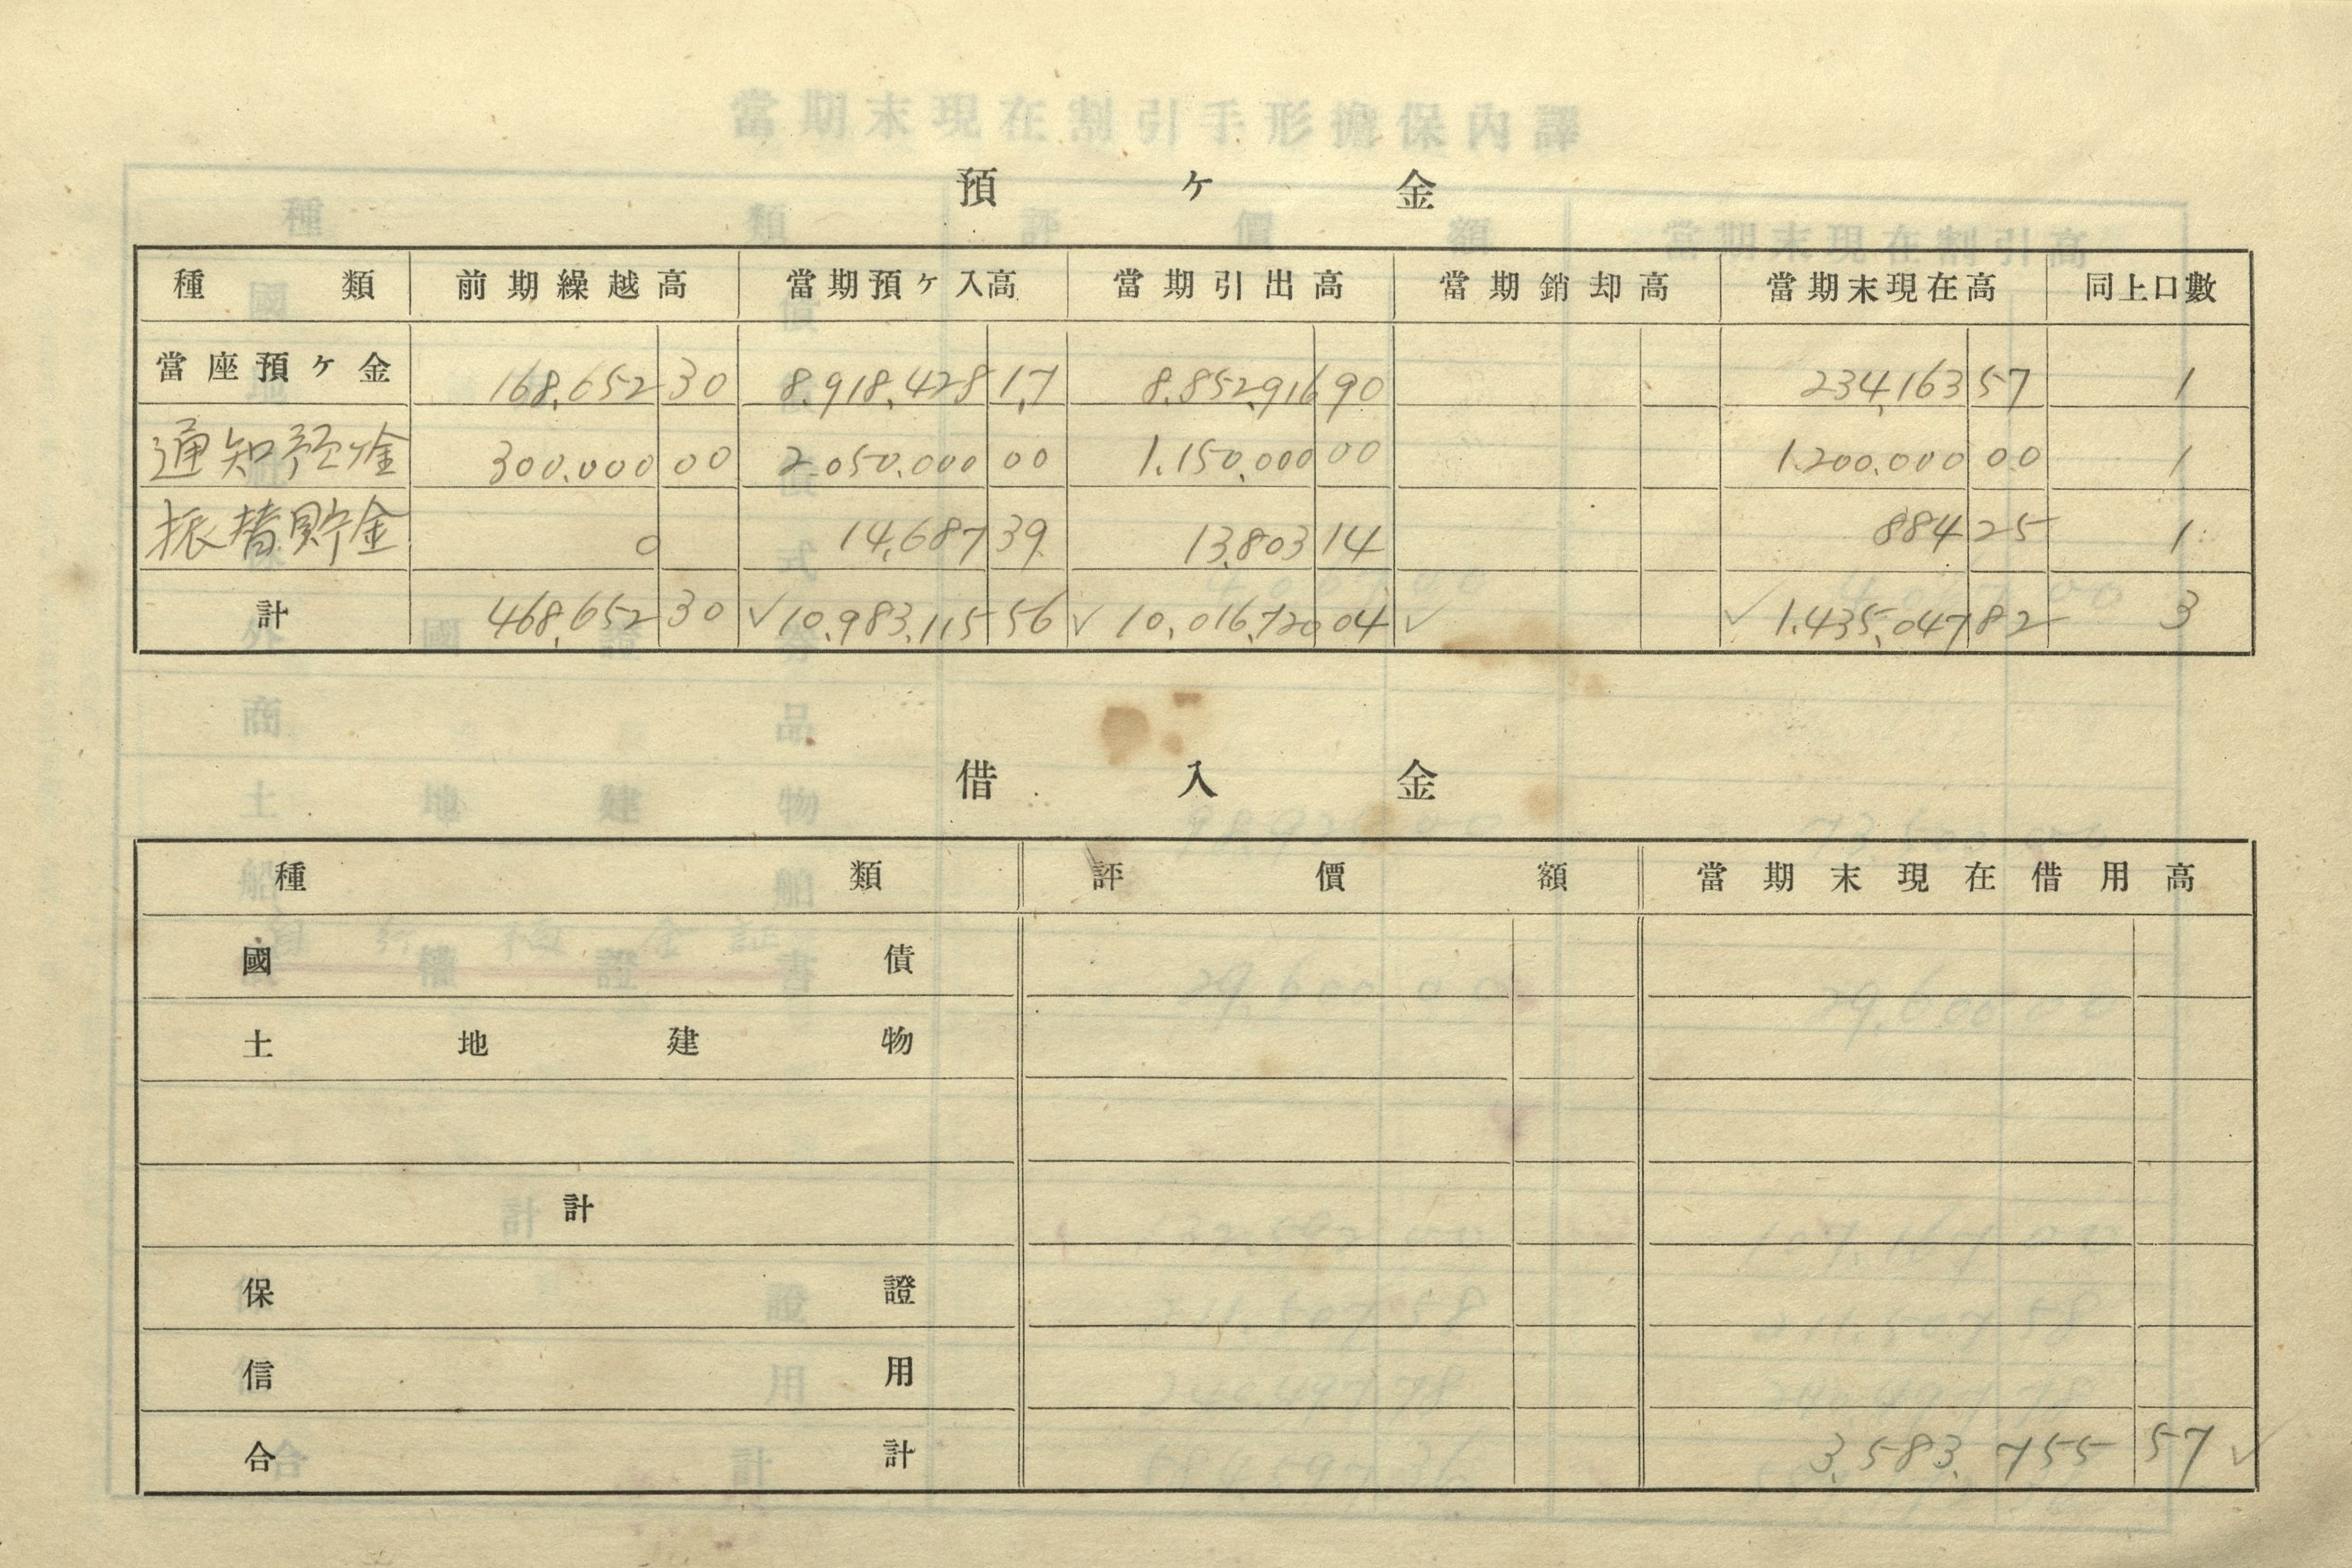 預ヶ金
種類 前期繰越高 當期預ヶ入高 當期引出高 當期銷却高 當期末現在高 同上口數
當座預ヶ金 168,652 30 8,918,428 17 8,852,916 90 234,163 57 1
通知預ヶ金 300,000 00 2,050,000 00 1,150,000 00 1,200,000 00 1
振替貯金 0 14,687 39 13,803 14 884 25 1
計 468,652 30 ✓ 10,983,115 56 ✓ 10,016,720 04 ✓ ✓ 1,435,047 82 3
借入金
種類 評價額 當期末現在借用高
國債
土地建物
計
保證
信用
合計 3,583,755 57 ✓